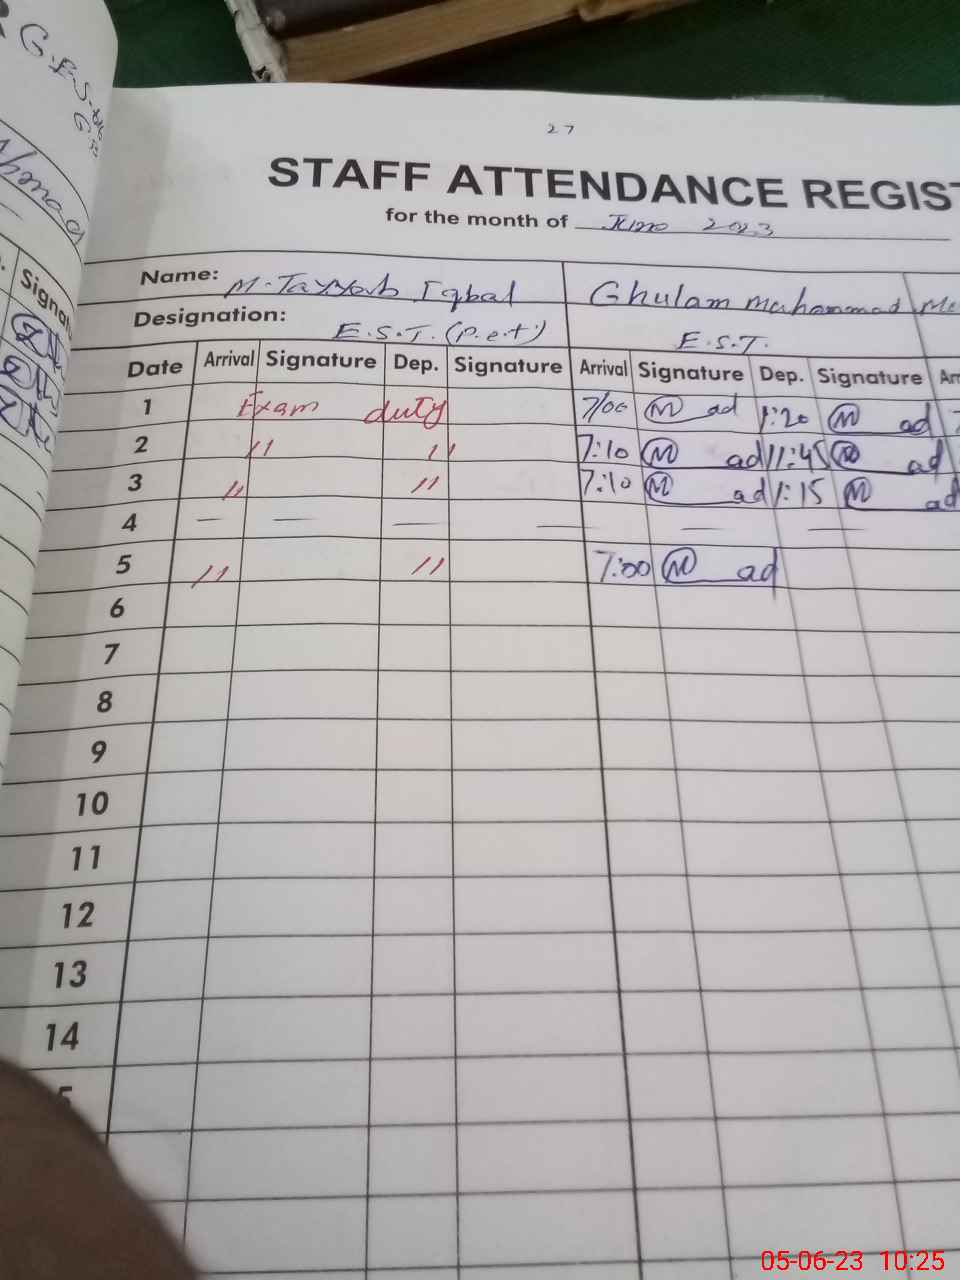 G.E.S.
27
STAFF ATTENDANCE REGIST
for the month of June 2023
Name: M. Tayyab Iqbal Ghulam Muhammad
Designation: E.S.T. (P.e.t) E.S.T.
Signatu
Date Arrival Signature Dep. Signature Arrival Signature Dep. Signature Arr
1 Exam duty 7/00 M ad 1:20 M ad
2 " " 7:10 M ad 11:45 M ad
3 " " 7:10 M ad 1:15 M ad
4 — — — — — —
5 " " 7:00 M ad
6
7
8
9
10
11
12
13
14
05-06-23 10:25